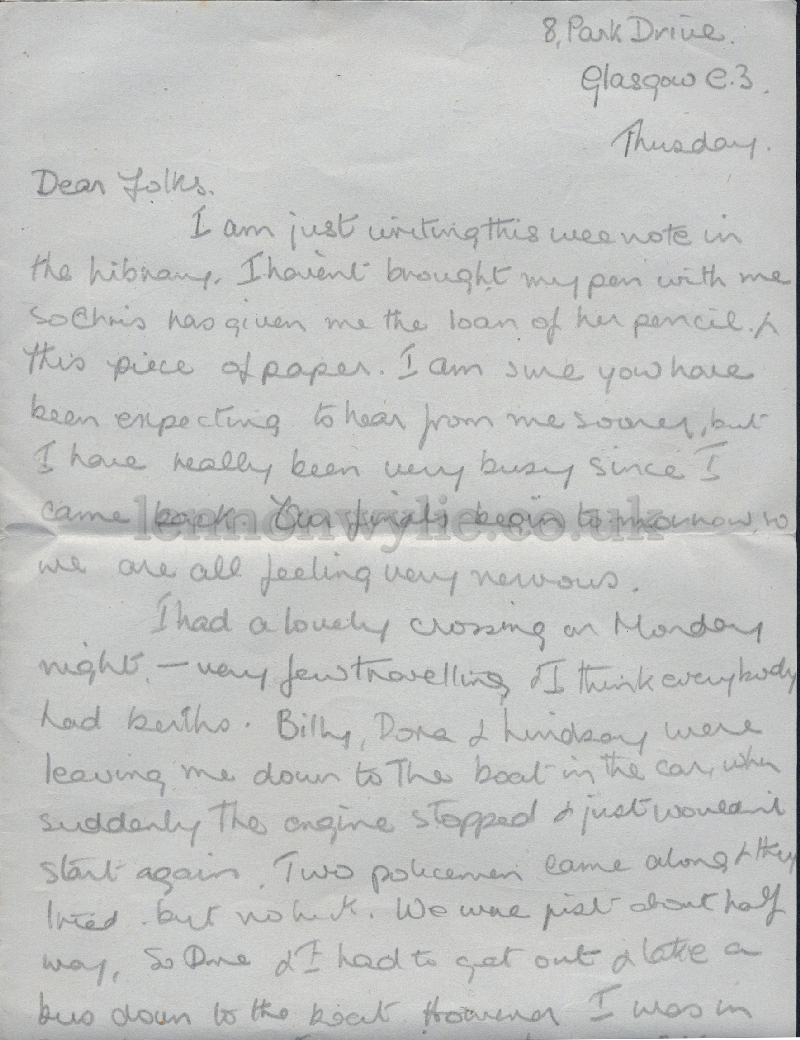 8, Park Drive.
Glasgow C.3.
Thursday.
Dear Folks.
I am just writing this wee note in
the Library. I haven't brought my pen with me
so Chris has given me the loan of her pencil &
this piece of paper. I am sure you have
been expecting to hear from me sooner, but
I have really been very busy since I
came back. Our finals begin tomorrow, so
lemonwylie.co.uk
we are all feeling very nervous.
I had a lovely crossing on Monday
night, — very few travelling & I think everybody
had berths. Billy, Dora & Lindsay were
leaving me down to the boat in the car, when
suddenly the engine stopped & just wouldn't
start again. Two policemen came along & they
tried but no luck. We were just about half
way, so Dora & I had to get out & take a
bus down to the boat. However I was in